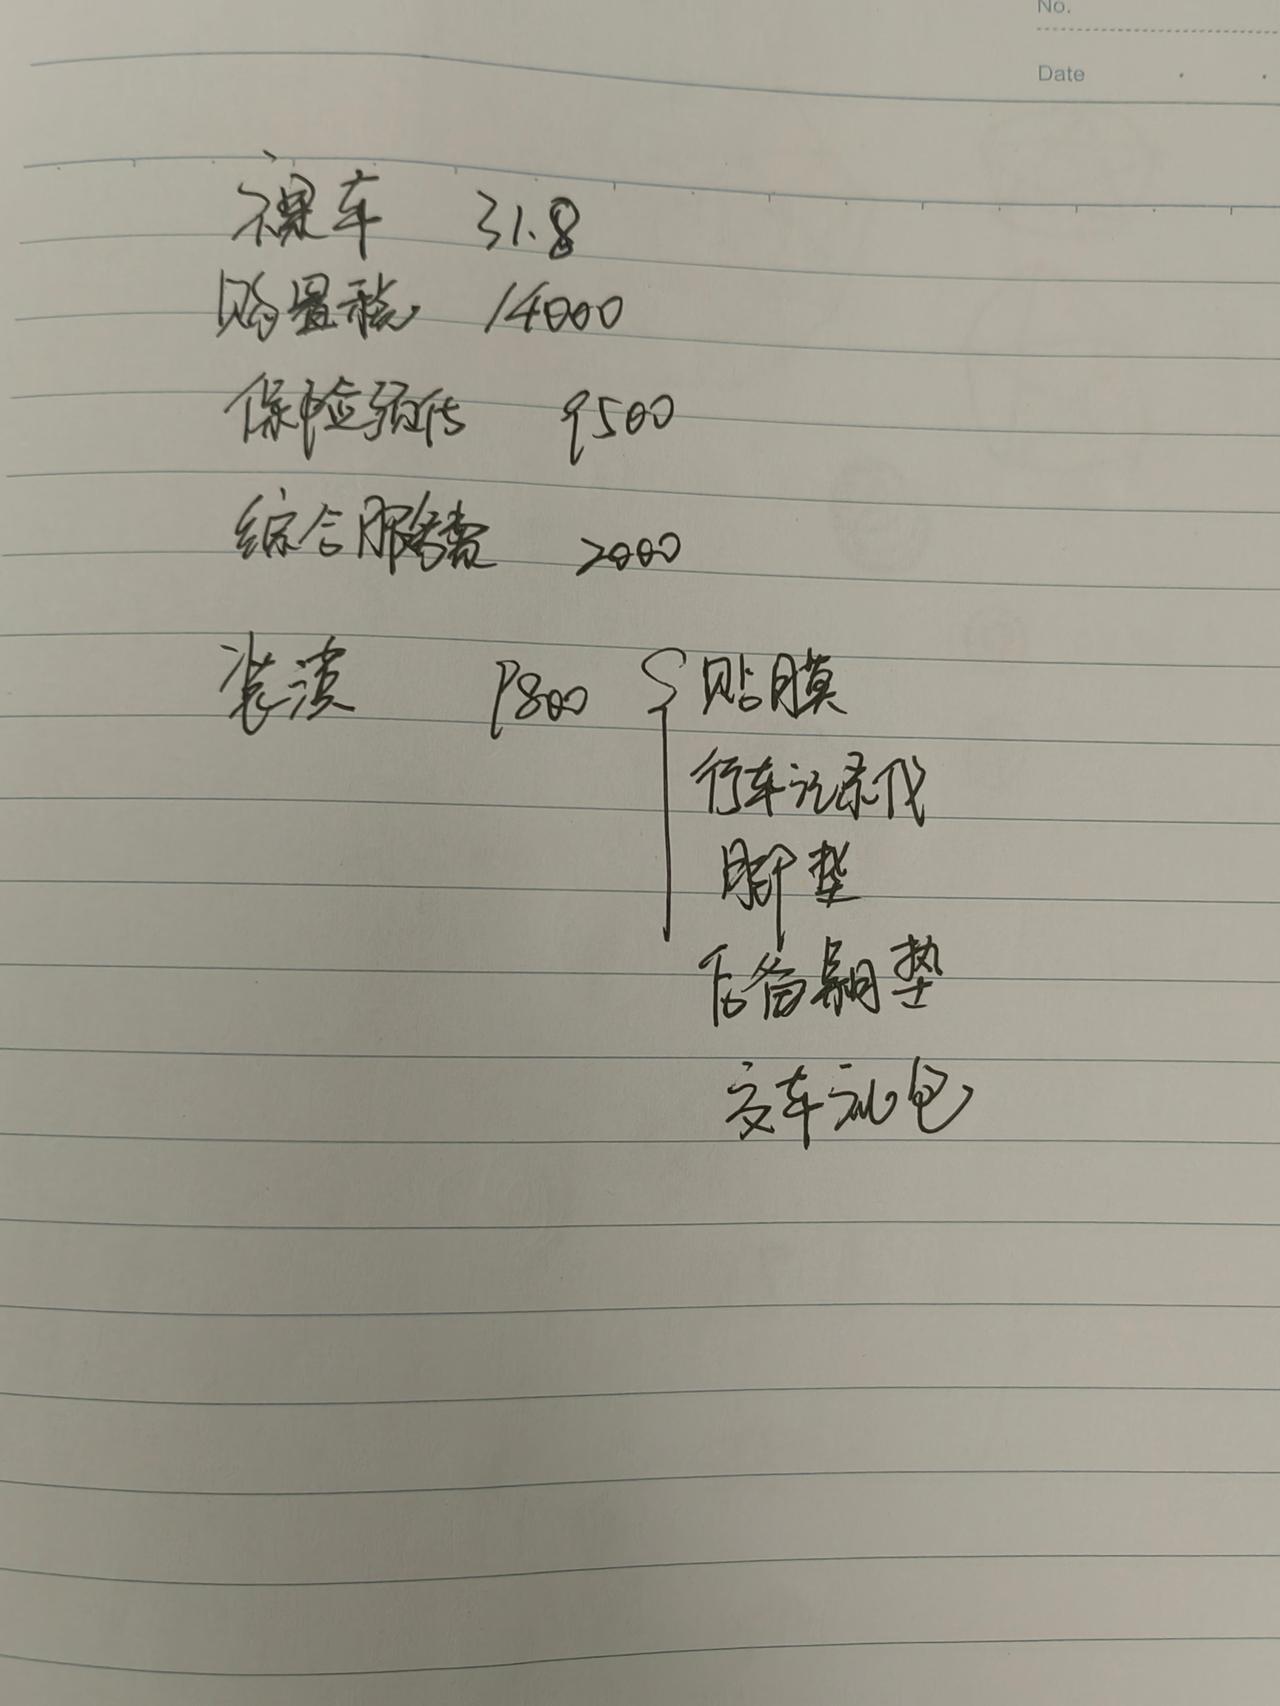 No.
Date
裸车 31.8
购置税 14000
保险预估 9500
综合服务费 2000
装潢 9800 贴膜
行车记录仪
脚垫
后备厢垫
交车礼包